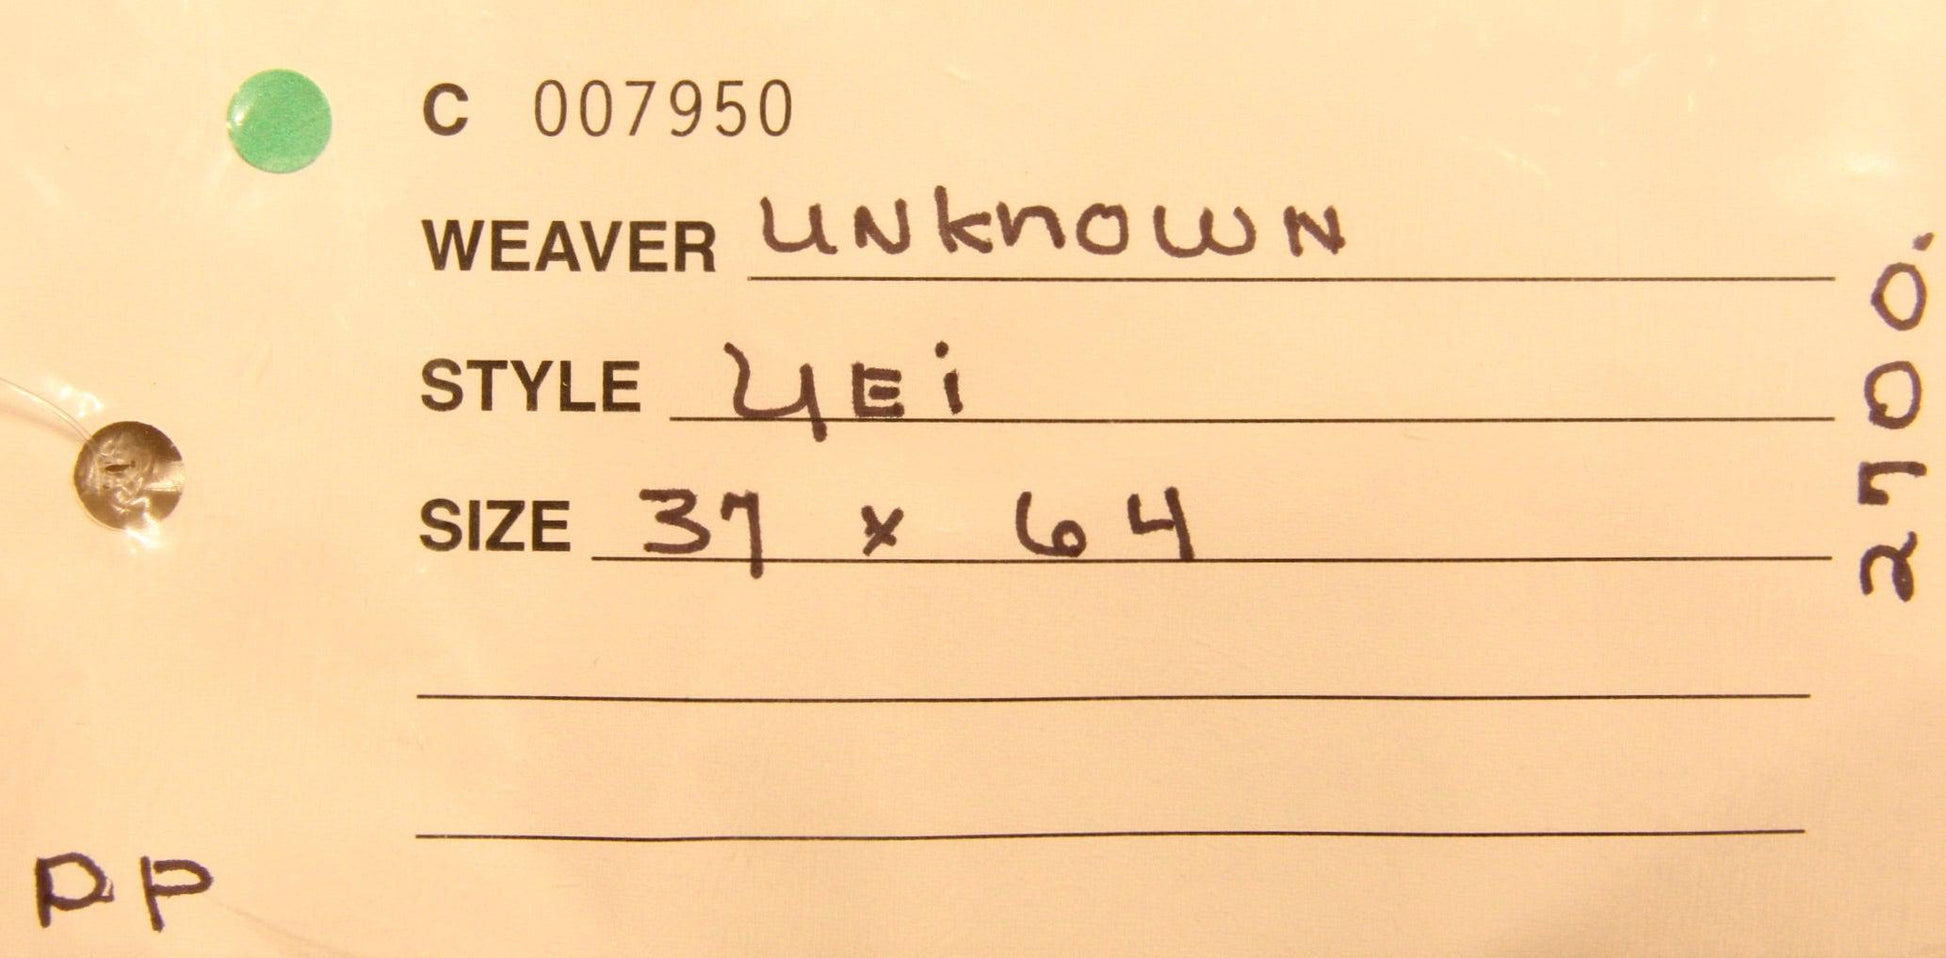 C 007950
WEAVER UNknOWN
STYLE YEi
SIZE 37 x 64
2700.
PP